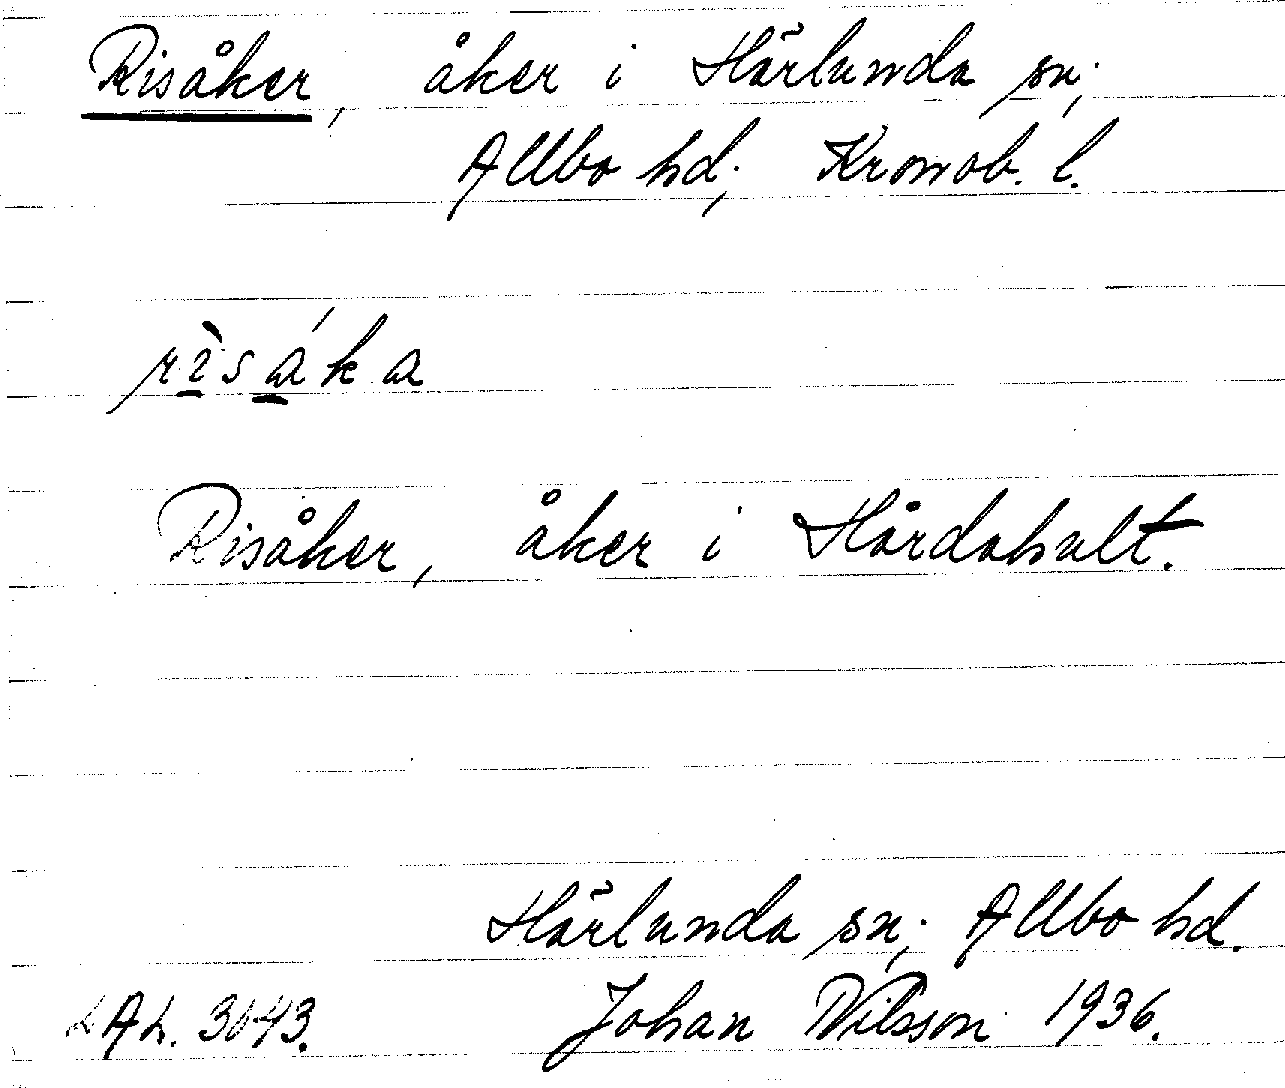 Risåker, åker i Härlunda sn;
Allbo hd; Kronob. l.
rìsáka
Risåker, åker i Hårdahult.
Härlunda sn; Allbo hd.
LAL. 3043. Johan Nilsson 1936.